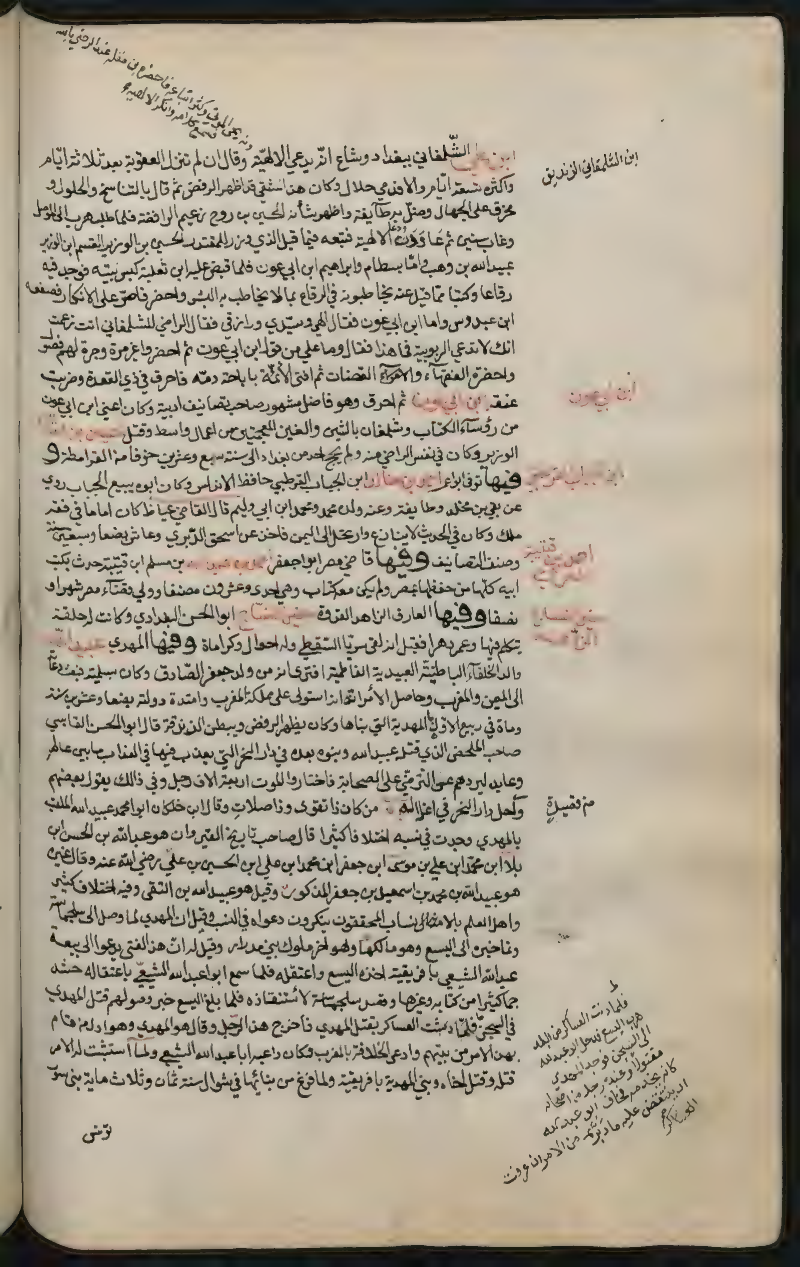 ابن علي الشلمغاني ببغداد وشاع انه يدعي الالهية وقال ان لم تنزل العقوبة بعد ثلاثة ايام
واكثره تسعة ايام والا فدمي حلال وكان هذا الشقي قد اظهر الرفض ثم قال بالتناسخ والحلول و
مخرق على الجهال وضل به طايفة واظهر شأنه الحسين بن روح زعيم الرافضة فلما طلب هرب الى الموصل
وغاب سنين ثم عاد ودعى الالهية فتبعه فيما قيل الذي وزر للمقتدر الحسين بن الوزير القسم ابن الوزير
عبيد الله بن وهب وابنا بسطام وابراهيم ابن ابي عون فلما قبض عليه ابن مقلة كبس بيته فوجد فيه
رقاعا وكتبا مما قيل عنه يخاطبونه في الرقاع بما لا يخاطب به البشر واحضر فاصر على الانكار فصفعه
ابن عبدوس واما ابن ابي عون فقال الهي وسيدي ورازقي فقال الراضي للشلمغاني انت زعمت
انك لا تدعي الربوبية فما هذا فقال وما علي من قول ابن ابي عون ثم احضر وا غير مرة وجرة لهم فصول
واحضرة الفقهاء والقضات ثم افتى الأئمة باباحة دمه فاحرق في ذي القعدة وضربت
عنقه ابن ابي عون ثم احرق وهو فاضل مشهور صاحب تصانيف ادبية وكان اعني ابن ابي عون
من رؤساء الكتاب وشلمغان بالشين والغين المعجمتين من اعمال واسط وقتل حسين بن القاسم
الوزير وكان في نفس الراضي منه ولم يحج احد من بغداد الى سنة سبع وعشرين خوفا من القرامطة و
فيها توفي ابو عمر احمد بن خالد ابن الجباب القرطبي حافظ الاندلس وكان ابوه يبيع الجباب روى
عن بقي بن مخلد وطايفة وعنه ولده محمد ومحمد ابن ابي دليم قال القاضي عياض كان اماما في فقه
ملك وكان في الحديث لا ينازع وارتحل الى اليمن فاخذ عن اسحق الدبري وعاش بضعا وسبعين سنة
وصنف التصانيف وفيها قاضي مصر ابو جعفر احمد بن عبد الله بن مسلم ابن قتيبة حدث بكتب
ابيه كلها من حفظه بمصر ولم يكن معه كتاب وهي احدى وعشرون مصنفا وولي قضاء مصر شهرا و
نصفا وفيها العارف الزاهد القدوة خير النساج ابو الحسن البغدادي وكانت له حلقة
يتكلم فيها وعمر دهرا فقيل انه لقي سريا السقطي وله احوال وكراماة وفيها المهدي عبيد الله
والد الخلفاء الباطنية العبيدية الفاطمية افترى انه من ولد جعفر الصادق وكان بسلمية فبعث دعاته
الى اليمن والمغرب وحاصل الامر انه استولى على مملكة المغرب وامتدة دولته بضعا وعشرين سنة
وماة في ربيع الاول بالمهدية التي بناها وكان يظهر الرفض ويبطن الزندقة قال ابو الحسن القابسي
صاحب الملخص الذي قتله عبيد الله وبنوه بعده في دار النحر التي يعذب فيها في العذاب ما بين عالم
وعابد ليردهم عن الترضي على الصحابة فاختاروا الموت اربعة الاف رجل وفي ذالك يقول بعضهم
واحل دار النحر في اغلاله من كان ذا تقوى وذا صلات وقال ابن خلكان ابو محمد عبيد الله الملقب
بالمهدي وجدت في نسبه اختلافا كثيرا قال صاحب تاريخ القيروان هو عبيد الله بن الحسن ابن
بلا ابن محمد ابن علي بن موسى ابن جعفر ابن محمد ابن علي ابن الحسين بن علي رضي الله عنه وقال غيره
هو عبيد الله بن محمد بن اسمعيل بن جعفر المذكور وقيل هو عبيد الله بن التقى وفيه اختلاف كثير
واهل العلم بالانساب المحققون ينكرون دعواه في النسب وقيل ان المهدي لما وصل الى سلجماسة
ونما خبره الى اليسع وهو مالكها وهو اخر ملوك بني مدرار وقيل له ان هذا الفتى يدعوا الى بيعة
عبد الله الشيعي بافريقية اخذه اليسع واعتقله فلما سمع ابو عبد الله الشيعي باعتقاله حشد
جمعا كثيرا من كتامة وغيرها وقصد سلجماسة لاستنقاذه فلما بلغ اليسع خبر وصولهم قتل المهدي
في السجن فلما دنت العساكر بقتل المهدي فاخرج هذا الرجل وقال هو المهدي وهو اول من قام
بهذا الامر من بيتهم وادعى الخلافة بالمغرب وكان داعيه ابا عبد الله الشيعي ولما استتب له الامر
قتله وقتل اخاه وبنى المهدية بافريقية ولما فرغ من بنائها في شوال سنة ثمان وثلاث ماية بنى سور
تونس
ابن الشلمغاني الزنديق
ابن ابي عون
ابن الجباب القرطبي
خير النساج الزاهد
من قصيدة
فلما دنت العساكر من البلد
هرب اليسع فدخل ابو عبد الله
الى السجن فوجد المهدي
مقتولا وعنده رجل من اصحابه
كان يخدمه فخاف ابو عبد الله
ان ينتقض عليه ما دبره من الامر ان عرفت
العساكر